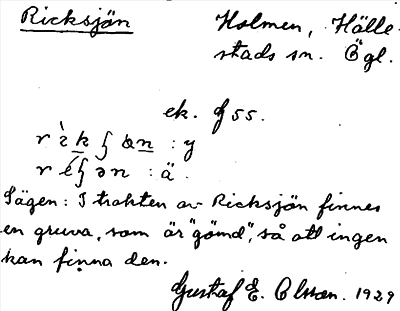 Ricksjön
Holmen, Hälle-
stads sn. Ögl.
ek. G 55.
: y
: ä.
Sägen: I trakten av Ricksjön finnes
en gruva, som är "gömd", så att ingen
kan finna den.
Gustaf E. Olsson. 1929